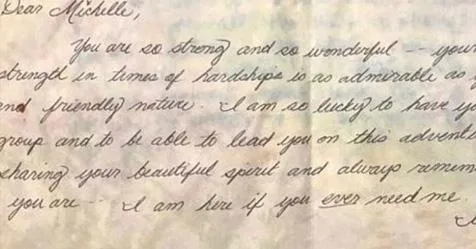 Dear Michelle,
You are so strong and so wonderful -- your
strength in times of hardships is as admirable as
and friendly nature. I am so lucky to have you
group and to be able to lead you on this adventu
sharing your beautiful spirit and always remem
you are -- I am here if you ever need me.